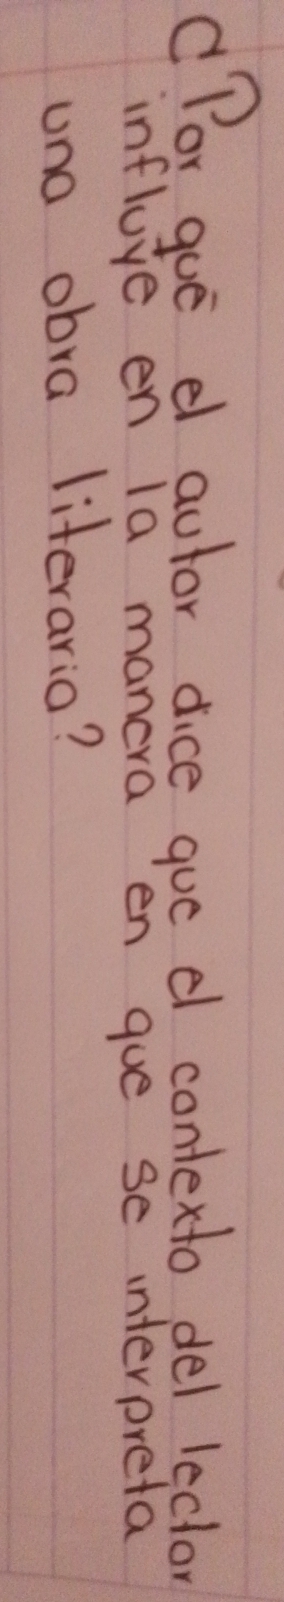 ¿Por qué el autor dice que el contexto del lector
influye en la manera en que se interpreta
una obra literaria?